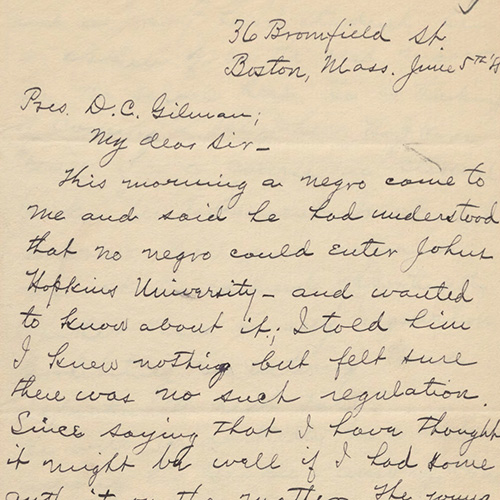 36 Bromfield St.
Boston, Mass. June 5TH '8
Pres. D. C. Gilman;
My dear Sir—
This morning a negro came to
me and said he had understood
that no negro could enter Johns
Hopkins University— and wanted
to know about it; I told him
I knew nothing but felt sure
there was no such regulation.
Since saying that I have thought
it might be well if I had some